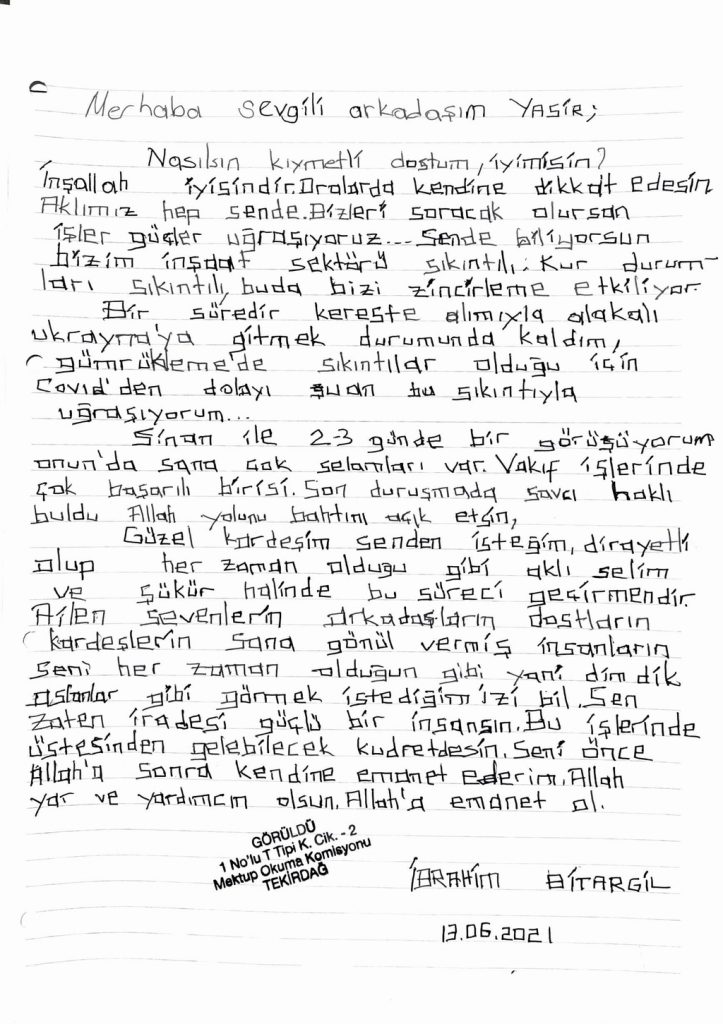 Merhaba sevgili arkadaşım YASİR;
Nasılsın kıymetli dostum, iyimisin?
İnşallah iyisindir. Oralarda kendine dikkat edesin
Aklımız hep sende. Bizleri soracak olursan
işler güçler uğraşıyoruz... Sende biliyorsun
bizim inşaat sektörü sıkıntılı. Kur durum-
ları sıkıntılı, buda bizi zincirleme etkiliyor.
Bir süredir kereste alımıyla alakalı
ukrayna'ya gitmek durumunda kaldım,
gümrükleme'de sıkıntılar olduğu için
Covid'den dolayı şuan bu sıkıntıyla
uğraşıyorum...
Sinan ile 2-3 günde bir görüşüyorum
onun'da sana çok selamları var. Vakıf işlerinde
çok başarılı birisi. Son duruşmada savcı haklı
buldu Allah yolunu bahtını açık etsin,
Güzel kardeşim senden isteğim, dirayetli
olup her zaman olduğu gibi aklı selim
ve şükür halinde bu süreci geçirmendir.
Ailen sevenlerin arkadaşların dostların
kardeşlerin sana gönül vermiş insanların
seni her zaman olduğun gibi yani dimdik
aslanlar gibi görmek istediğimizi bil. Sen
zaten iradesi güçlü bir insansın. Bu işlerinde
üstesinden gelebilecek kudretdesin. Seni önce
Allah'a sonra kendine emanet ederim. Allah
yar ve yardımcın olsun. Allah'a emanet ol.
GÖRÜLDÜ
1 No'lu T Tipi K. Cik. - 2
Mektup Okuma Komisyonu
TEKİRDAĞ
İBRAHİM BİTARGİL
13.06.2021